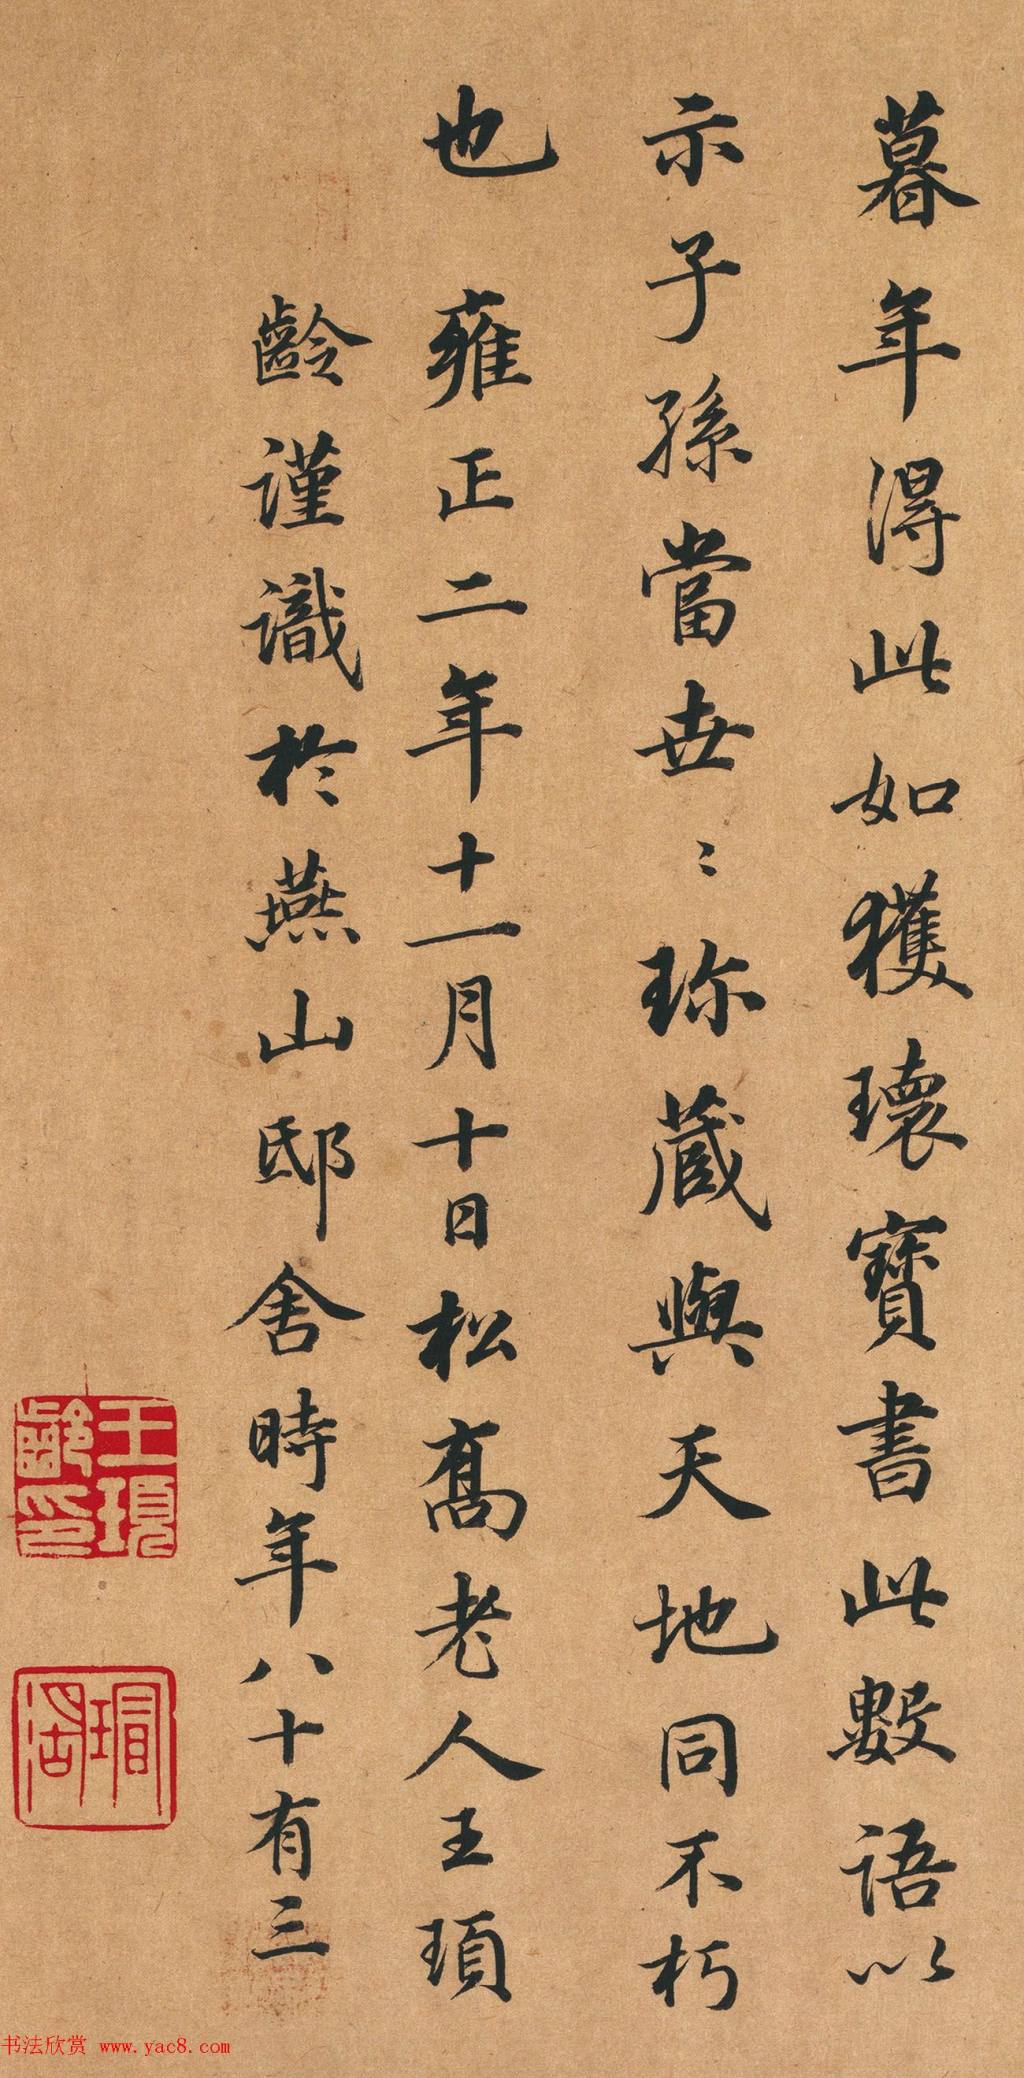 暮年得此如獲瓌寶書此數語以
示子孫當世〻珎藏與天地同不朽
也 雍正二年十一月十日松喬老人王頊
齡謹識於燕山邸舍時年八十有三
王頊
齡印
瑁湖
书法欣赏 www.yac8.com